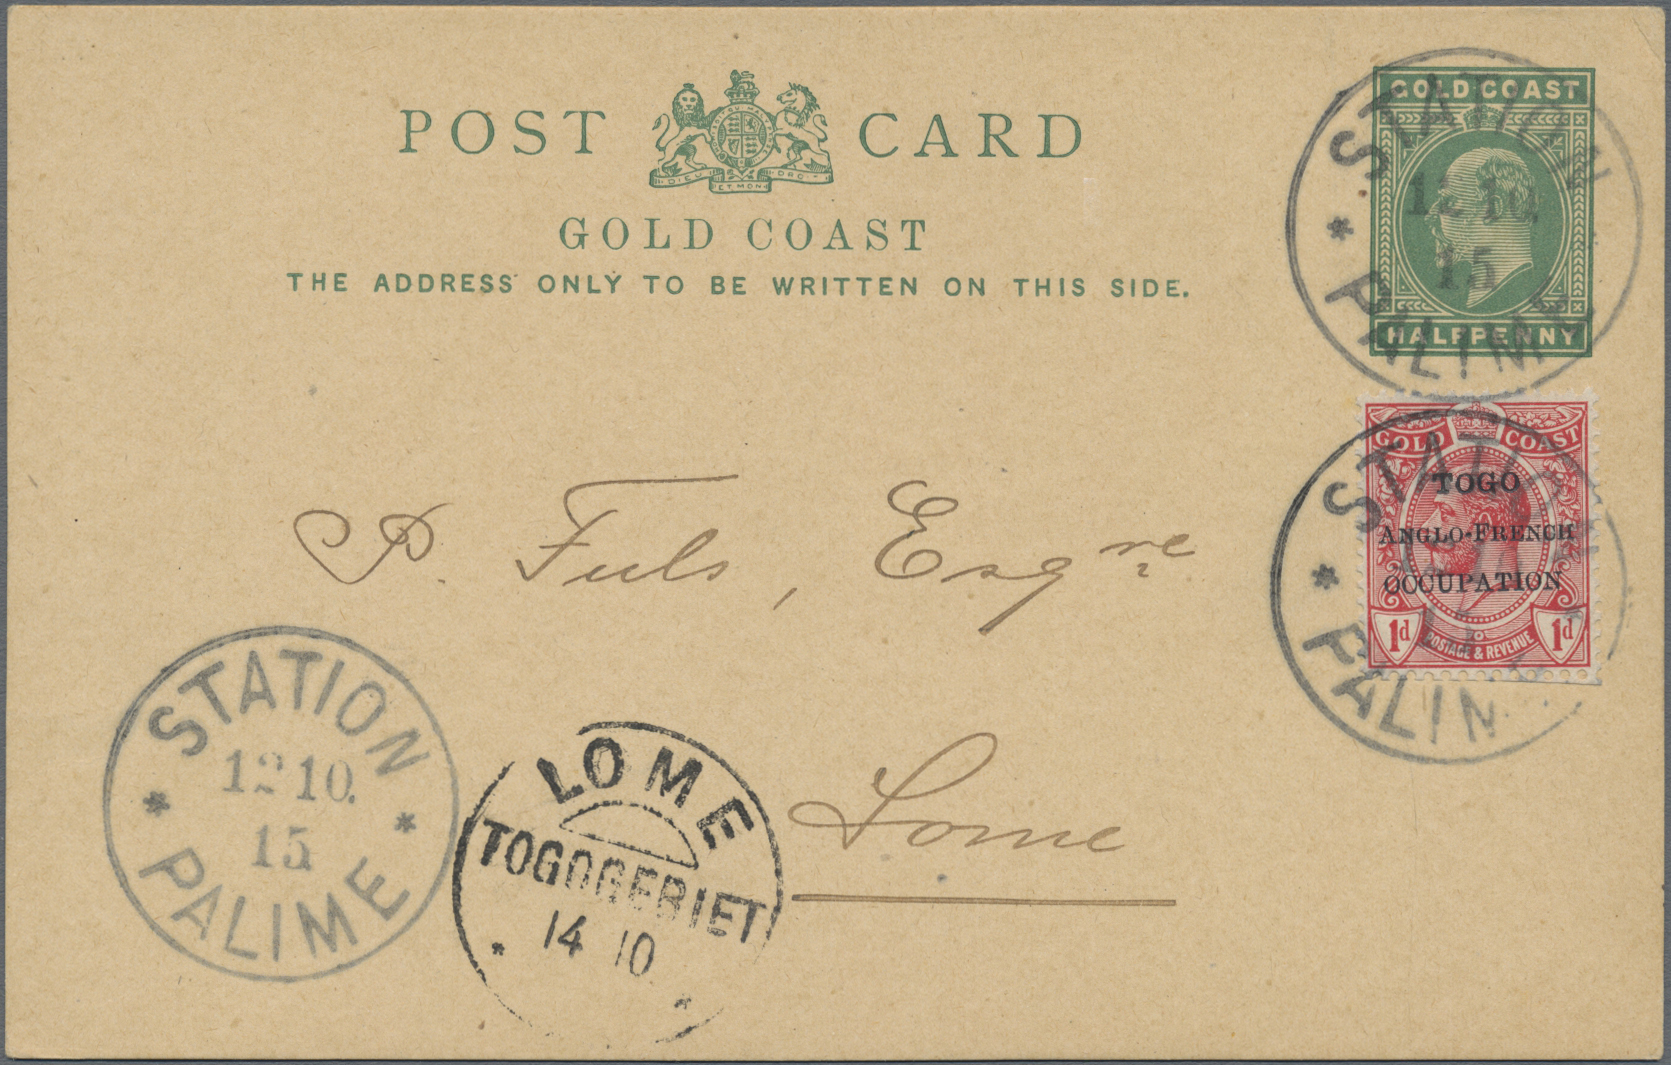 POST CARD
DIEU ET MON DROIT
GOLD COAST
THE ADDRESS ONLY TO BE WRITTEN ON THIS SIDE.
GOLD COAST
HALFPENNY
STATION
12 10.
15
PALIME
GOLD COAST
TOGO
ANGLO-FRENCH
OCCUPATION
1d POSTAGE & REVENUE 1d
STATION
PALIM
P. Fuls, Esqre
Lome
STATION
12 10.
15
PALIME
LOME
TOGOGEBIET
14 10